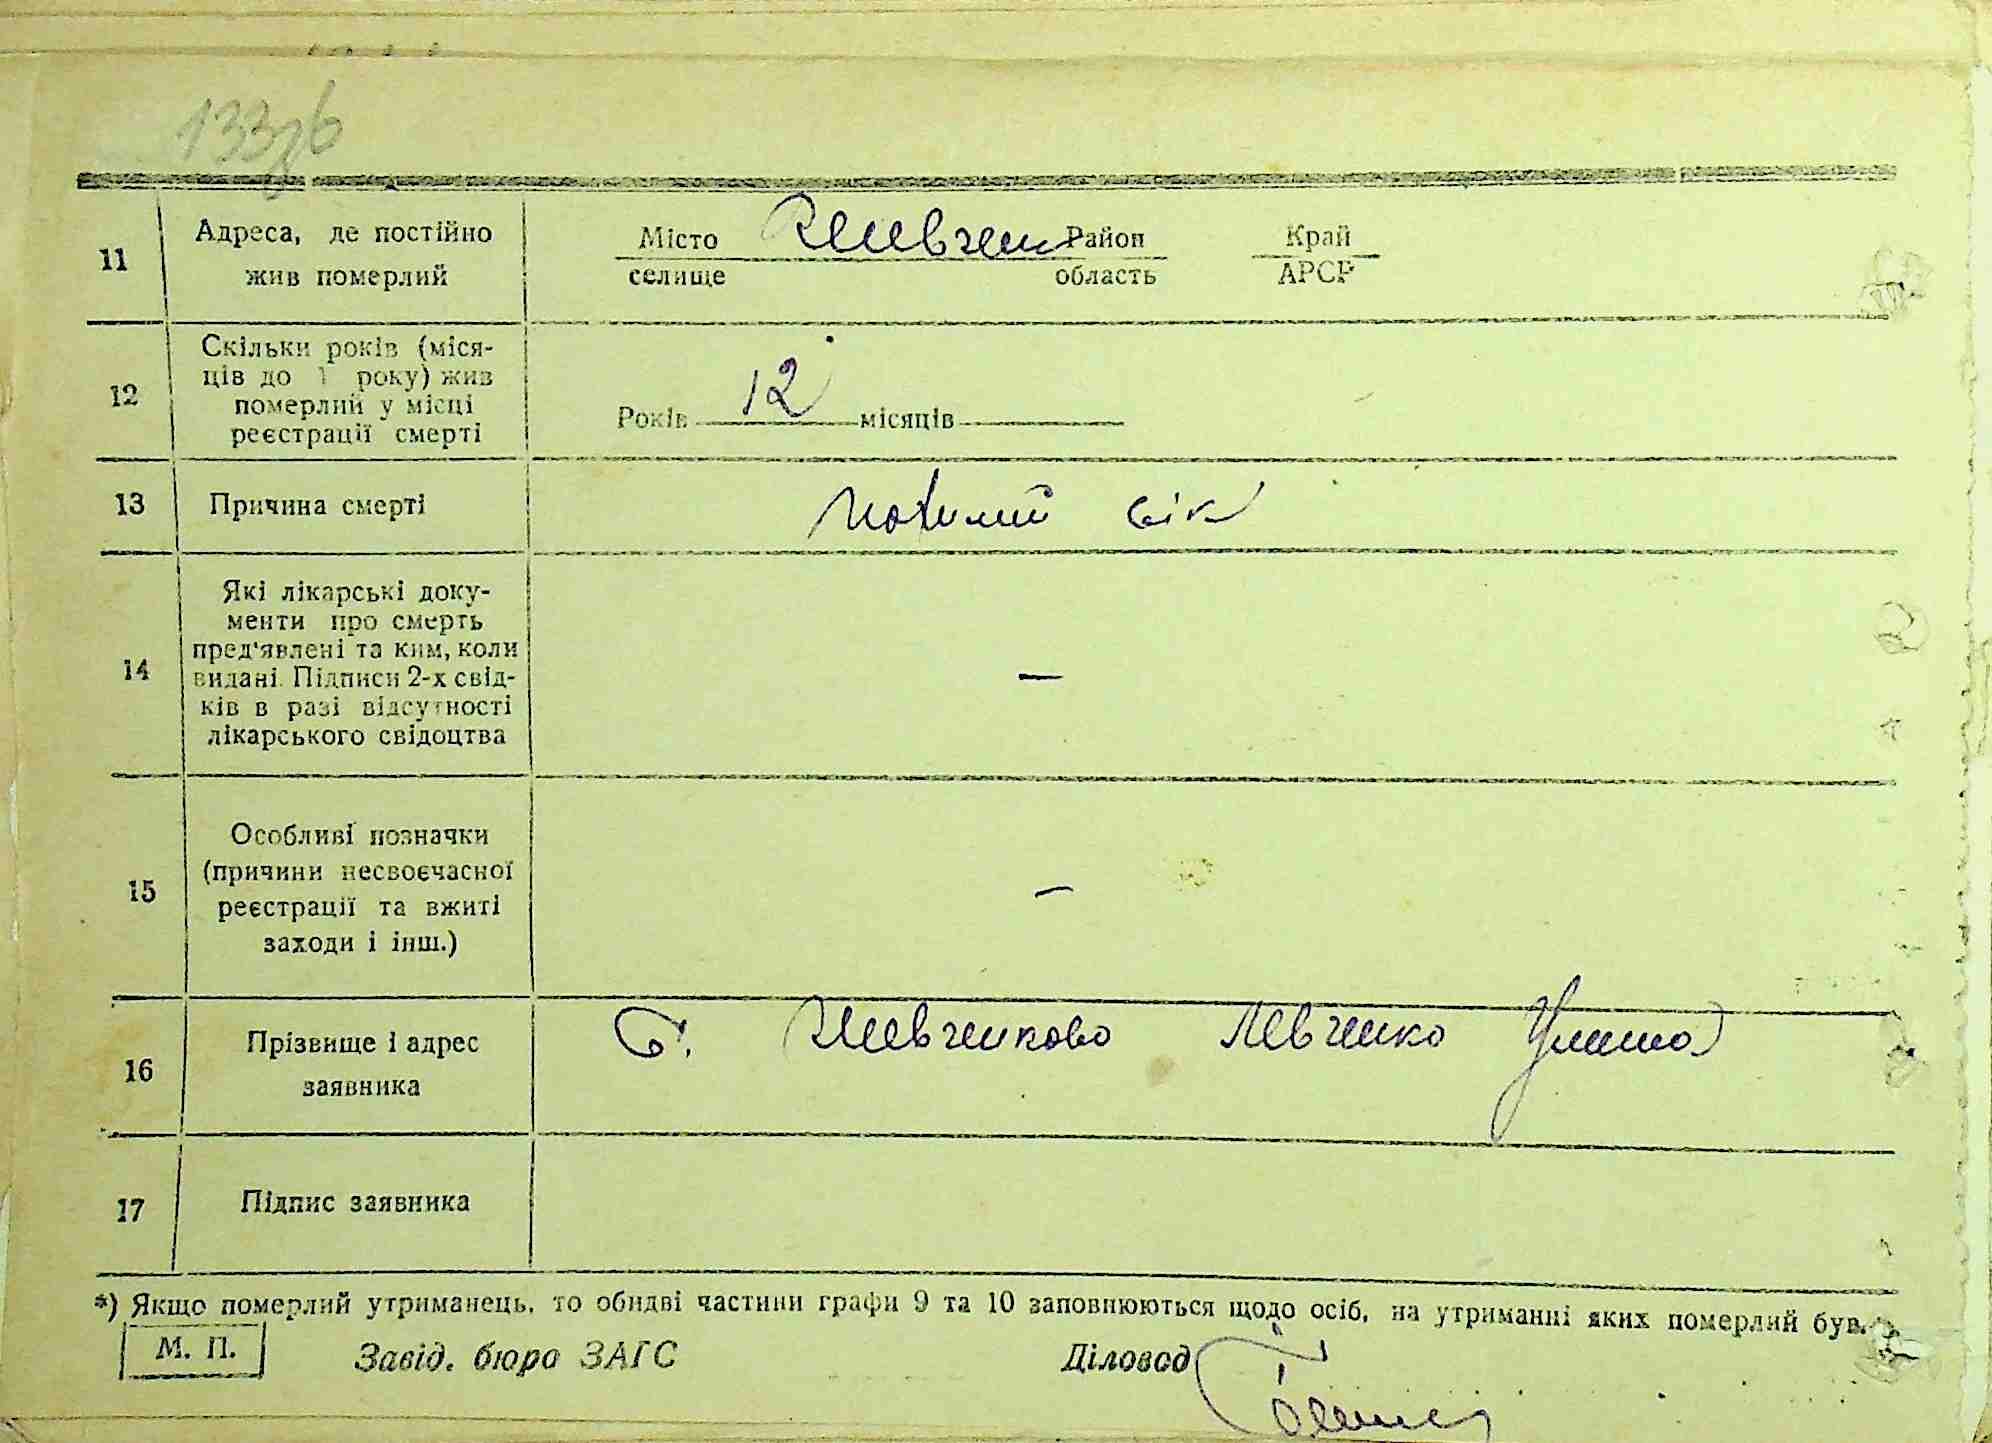 133
11
Адреса, де постійно
жив померлий
Місто Шевченк Район Край
селище область АРСР
12
Скільки років (міся-
ців до 1 року) жив
померлий у місці
реєстрації смерті
Років 12 місяців
13
Причина смерті
похилий вік
14
Які лікарські доку-
менти про смерть
пред'явлені та ким, коли
видані. Підписи 2-х свід-
ків в разі відсутності
лікарського свідоцтва
—
15
Особливі позначки
(причини несвоєчасної
реєстрації та вжиті
заходи і інш.)
—
16
Прізвище і адрес
заявника
с. Шевченково Левченко Улина
17
Підпис заявника
*) Якщо померлий утриманець, то обидві частини графи 9 та 10 заповнюються щодо осіб, на утриманні яких померлий був.
М. П. Завід. бюро ЗАГС Діловод